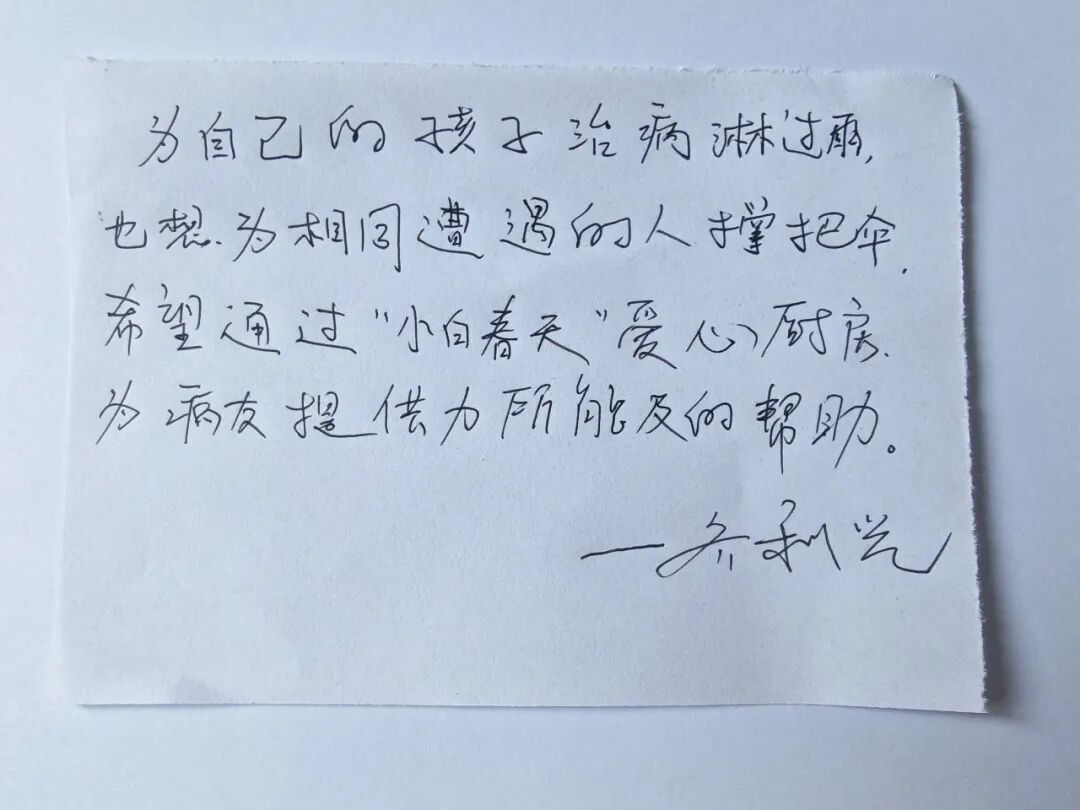 为自己的孩子治病淋过雨,
也想为相同遭遇的人撑把伞,
希望通过“小白春天”爱心厨房、
为病友提供力所能及的帮助。
——齐利光